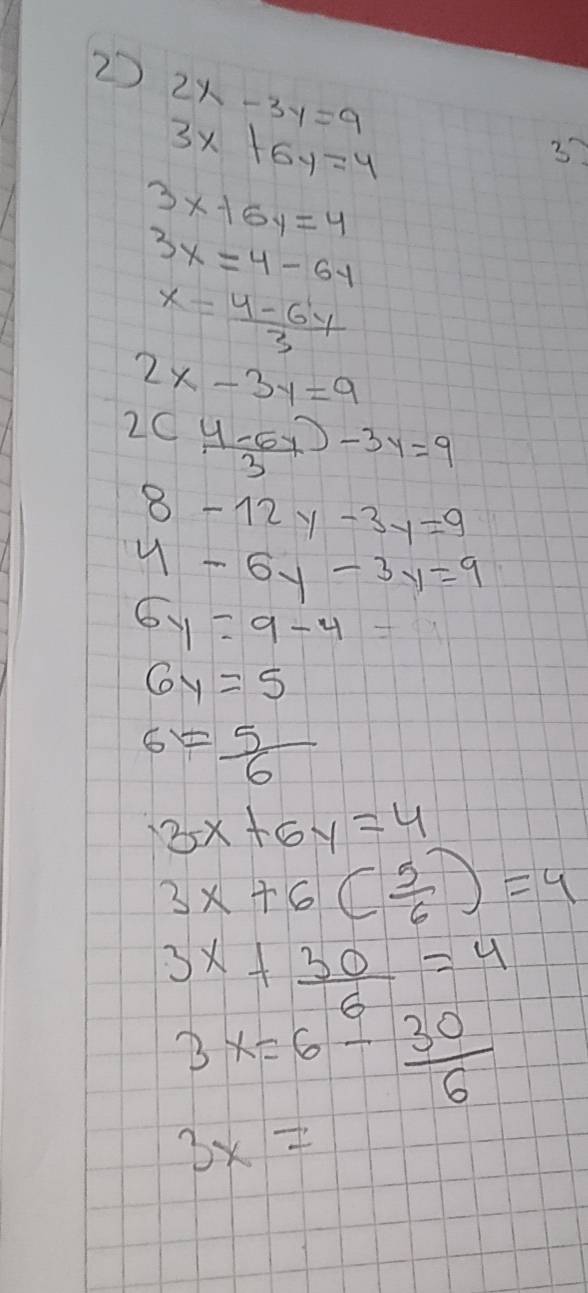 2) 2x - 3y = 9
3x + 6y = 4
3)
3x + 6y = 4
3x = 4 - 6y
x = 4 - 6y / 3
2x - 3y = 9
2( 4 - 6y / 3 ) - 3y = 9
8 - 12y - 3y = 9
4 - 6y - 3y = 9
6y = 9 - 4 =
6y = 5
6 = 5 / 6
3x + 6y = 4
3x + 6 ( 5 / 6 ) = 4
3x + 30 / 6 = 4
3x = 6 - 30 / 6
3x =